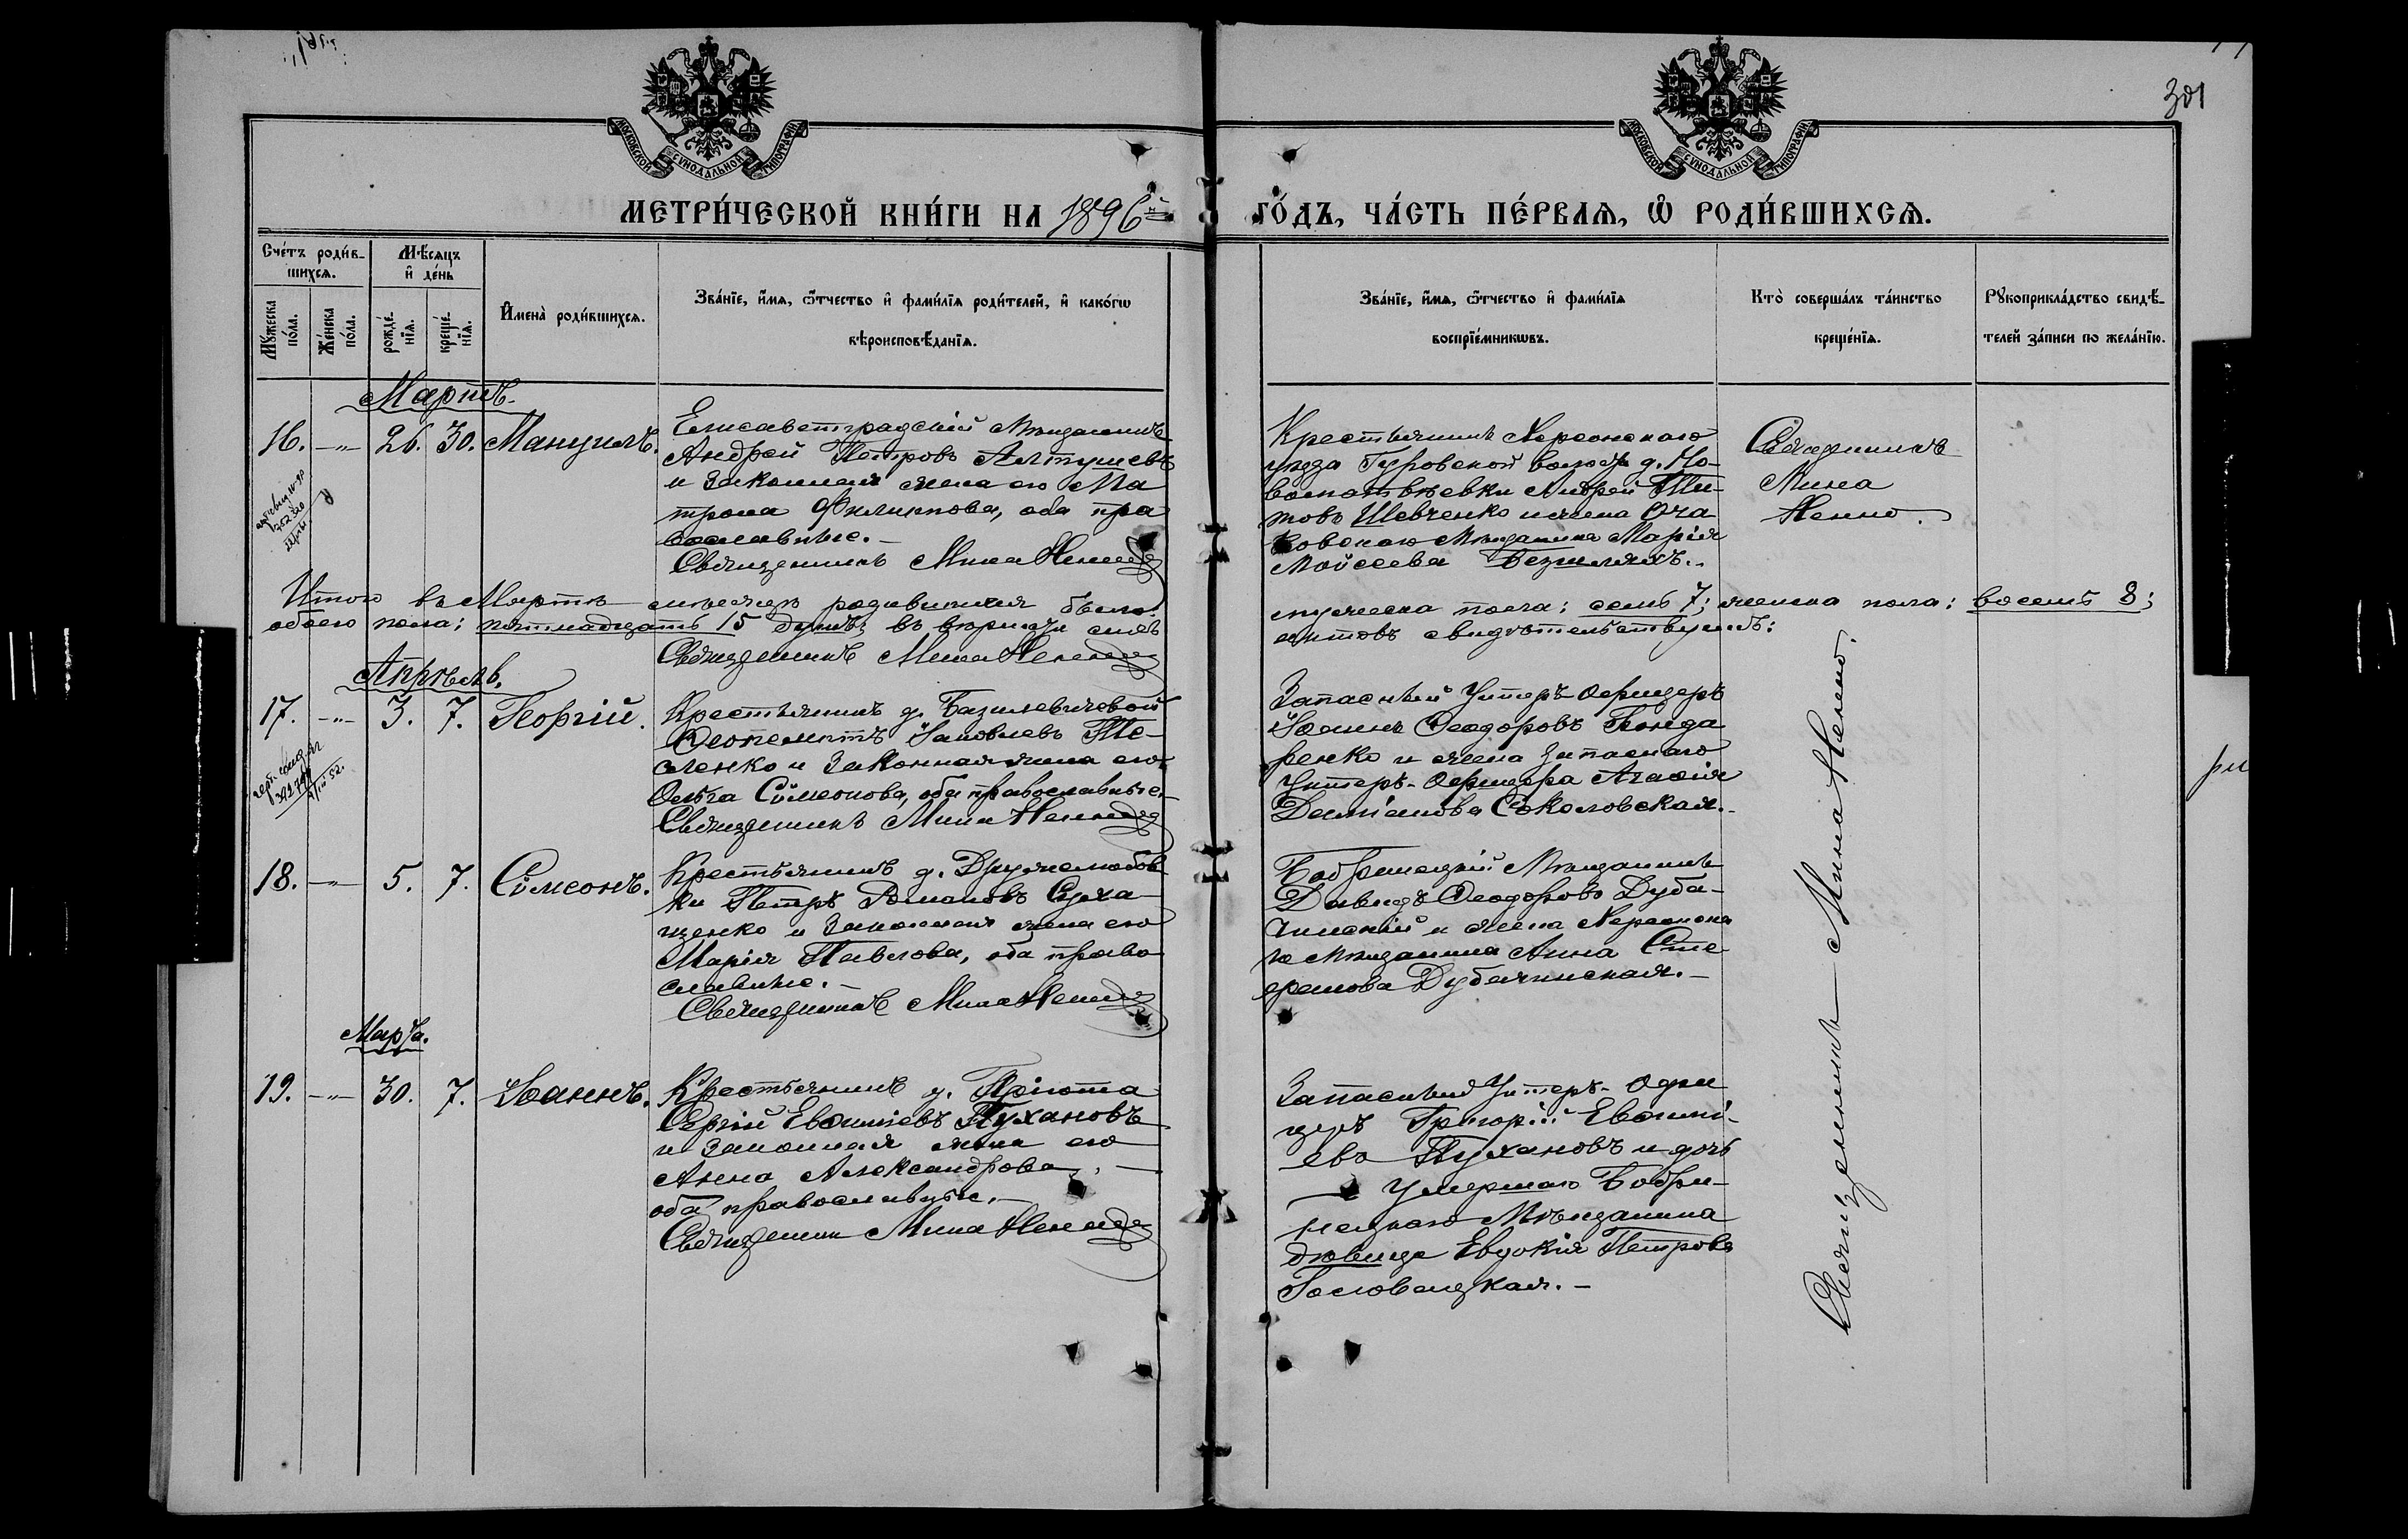 301
МОСКОВСКОЙ СУНОДАЛЬНОЙ ТИПОГРАФІИ
МОСКОВСКОЙ СУНОДАЛЬНОЙ ТИПОГРАФІИ
МЕТРИ́ЧЕСКОЙ КНИ́ГИ НА 1896й ГО́ДЪ, ЧА́СТЬ ПЕ́РВАѦ, Ѡ҆ РОДИ́ВШИХСѦ.
Сче́тъ роди́в-
шихсѧ.
Мѣ́сѧцъ
и҆ де́нь
Мꙋ́жеска
по́ла.
Же́нска
по́ла.
рожде́-
нїѧ.
креще́-
нїѧ.
И҆мена̀ роди́вшихсѧ.
Зва́нїе, и҆́мѧ, ѻ҆́тчество и҆ фами́лїѧ роди́телей, и҆ како́гѡ
вѣроисповѣ́данїѧ.
Зва́нїе, и҆́мѧ, ѻ҆́тчество и҆ фами́лїѧ
воспрїе́мникѡвъ.
Кто̀ соверша́лъ та́инство
креще́нїѧ.
Рꙋкоприкла́дство свидѣ́-
телей за́писи по жела́нїю.
Мартъ.
16. -"- 26. 30. Мануилъ.
Елисаветградскій Мѣщанинъ
Андрей Петровъ Алтушевъ
и законная жена его Ма
трона Филиппова, оба пра
вославные.-
Священникъ Мина Ненно
Крестьянинъ Херсонскаго
уѣзда Гуровской волости д. Но-
воматвѣевки Андрей Ти-
товъ Шевченко и жена Оча
ковскаго Мѣщанина Марія
Мойсеева Безшляхъ..
Священникъ
Мина
Ненно.
Итого въ Мартѣ мѣсяцѣ родившихся было: мужеска пола: семь 7; женска пола: восемь 8;
обоего пола: пятнадцать 15 душъ; въ вѣрности сихъ актовъ свидѣтельствуемъ:
Священникъ Мина Ненно
Апрѣль.
17. -"- 3. 7. Георгій.
Крестьянинъ д. Базилевичевой
Феопемптъ Іаковлевъ Те-
сленко и законная жена его
Ольга Сѵмеонова, оба православные.-
Священникъ Мина Ненно
Запасный Унтеръ Офицеръ
Іоаннъ Феодоровъ Бонда
ренко и жена запаснаго
Унтеръ-Офицера Агафія
Даміанова Соколовская.-
18. -"- 5. 7. Сѵмеонъ.
Крестьянинъ д. Дружелюбов
ки Петръ Романовъ Суха
щенко и законная жена его
Марія Павлова, оба право
славные.-
Священникъ Мина Ненно
Бобринецкій Мѣщанинъ
Давидъ Феодоровъ Дуба-
чинскій и жена Херсонска
го Мѣщанина Анна Сте
фанова Дубачинская.-
Марта.
19. -"- 30. 7. Іоаннъ.
Крестьянинъ д. Пріюта
Сергій Евфиміевъ Пухановъ
и законная жена его
Анна Александрова, -
оба православные.-
Священникъ Мина Ненно
Запасный Унтеръ-Офи
церъ Григорій Евфимі-
евъ Пухановъ и дочь
умершаго Бобри-
нецкаго Мѣщанина
дѣвица Евдокія Петрова
Головацкая.-
Священникъ Мина Ненно.